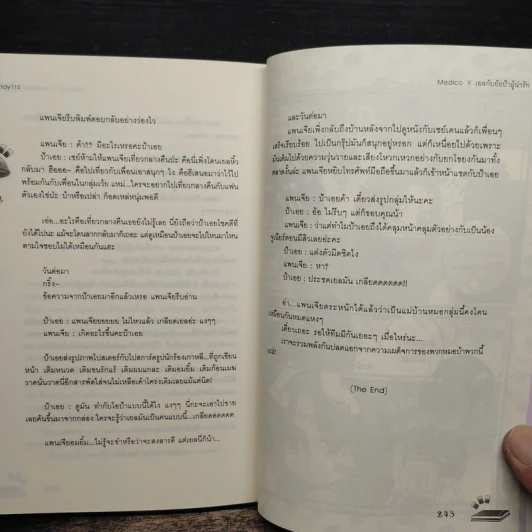 nay112
แพนเจียรีบพิมพ์ตอบกลับอย่างว่องไว
แพนเจีย : ค้า?? มีอะไรเหรอคะป้าเอย
ป้าเอย : เซย์ห้ามให้แพนเจียเที่ยวกลางคืนปะ คือนี่เพิ่งโดนเยลหิ้ว
กลับมา ฮือออ~ คือไปเที่ยวกับเพื่อนเอาสนุกๆ ไง
พร้อมกันกับเพื่อนในกลุ่มเว้ย แหม่...ใครจะอยากไปเที่ยวกลางคืนกับแฟน
ตัวเองใช่ปะ บ้าหรือเปล่า ก็อดเหล่หนุ่มพอดี
เธ่อ...อะไรคือเที่ยวกลางคืนเธอยังไม่รู้เลย นี่ยังถือว่าป้าเอยโชคดีที่
ยังได้ไปนะ แม้จะโดนลากกลับมาก็เถอะ แต่ดูเหมือนป้าเอยจะไปไหนมาไหน
ตามใจชอบไม่ได้เหมือนกันแฮะ
วันต่อมา
กริ๊ง~
ข้อความจากป้าเอยมาอีกแล้วเหรอ แพนเจียรีบอ่าน
ป้าเอย : แพนเจียยยยยย ไม่ไหวแล้ว เกลียดเยลอ่ะ แงๆๆ
แพนเจีย : เกิดอะไรขึ้นคะป้าเอย
ป้าเอยส่งรูปภาพโปสเตอร์กับโปสการ์ดรูปนักร้องเกาหลี...ที่ถูกเขียน
หน้า เติมหนวด เติมขนรักแร้ เติมผมแกละ เติมอมยิ้ม เติมก้อนเมฆ
วาดนั่นวาดนี่อีกสารพัดใส่จนไม่เหลือเค้าโครงเดิมเลยแม้แต่นิด!
ป้าเอย : ดูมัน ทำกับโอป้าแบบนี้ได้ไง แงๆๆ นี่กะจะเอาไปขาย
เลยค้นขึ้นมาจากกล่อง ใครจะรู้ว่าเยลมันเป็นคนแบบนี้...เกลียดดดดดด
แพนเจียอมยิ้ม...ไม่รู้จะขำหรือว่าจะสงสารดี แต่เยลนี่ก็น้า...
Medico Y เธอกับยัยป้าผู้น่ารัก
และวันต่อมา
แพนเจียเพิ่งกลับถึงบ้านหลังจากไปดูหนังกับเซย์เดนแล้วก็เพื่อนๆ
เสร็จเรียบร้อย ไปเป็นกรุ๊ปมันก็สนุกอยู่หรอก แต่ก็เหนื่อยไปด้วยเพราะ
มันเต็มไปด้วยความวุ่นวายและเสียงโหวกเหวกอย่างกับยกโขยงกันมาทั้ง
ตลาดงั้นล่ะ แพนเจียหยิบโทรศัพท์มือถือขึ้นมาแล้วก็เข้าหน้าแชตกับป้าเอย
แพนเจีย : ป้าเอยค้า เดี๋ยวส่งรูปกลุ่มให้นะคะ
ป้าเอย : อ้อ ไม่รีบๆ แต่ก็ขอบคุณน้า
แพนเจีย : ว่าแต่ทำไมป้าเอยถึงได้คลุมหน้าคลุมตัวอย่างกับเป็นน้อง
ป้าเอย : แต่งตัวมิดชิดไง
แพนเจีย : หา?
ป้าเอย : ประชดเยลมัน เกลียดดดดดด!!
อ่า...แพนเจียตระหนักได้แล้วว่าเป็นแม่บ้านหมอกลุ่มนี้คงโดน
เหมือนกันหมดแหงๆ
เดี๋ยวเถอะ รอให้ทีมมีกันเยอะๆ เมื่อไหร่นะ...
เราจะรวมพลังกันปลดแอกจากความเผด็จการของพวกหมอบ้าพวกนี้
แน่!
(The End)
273